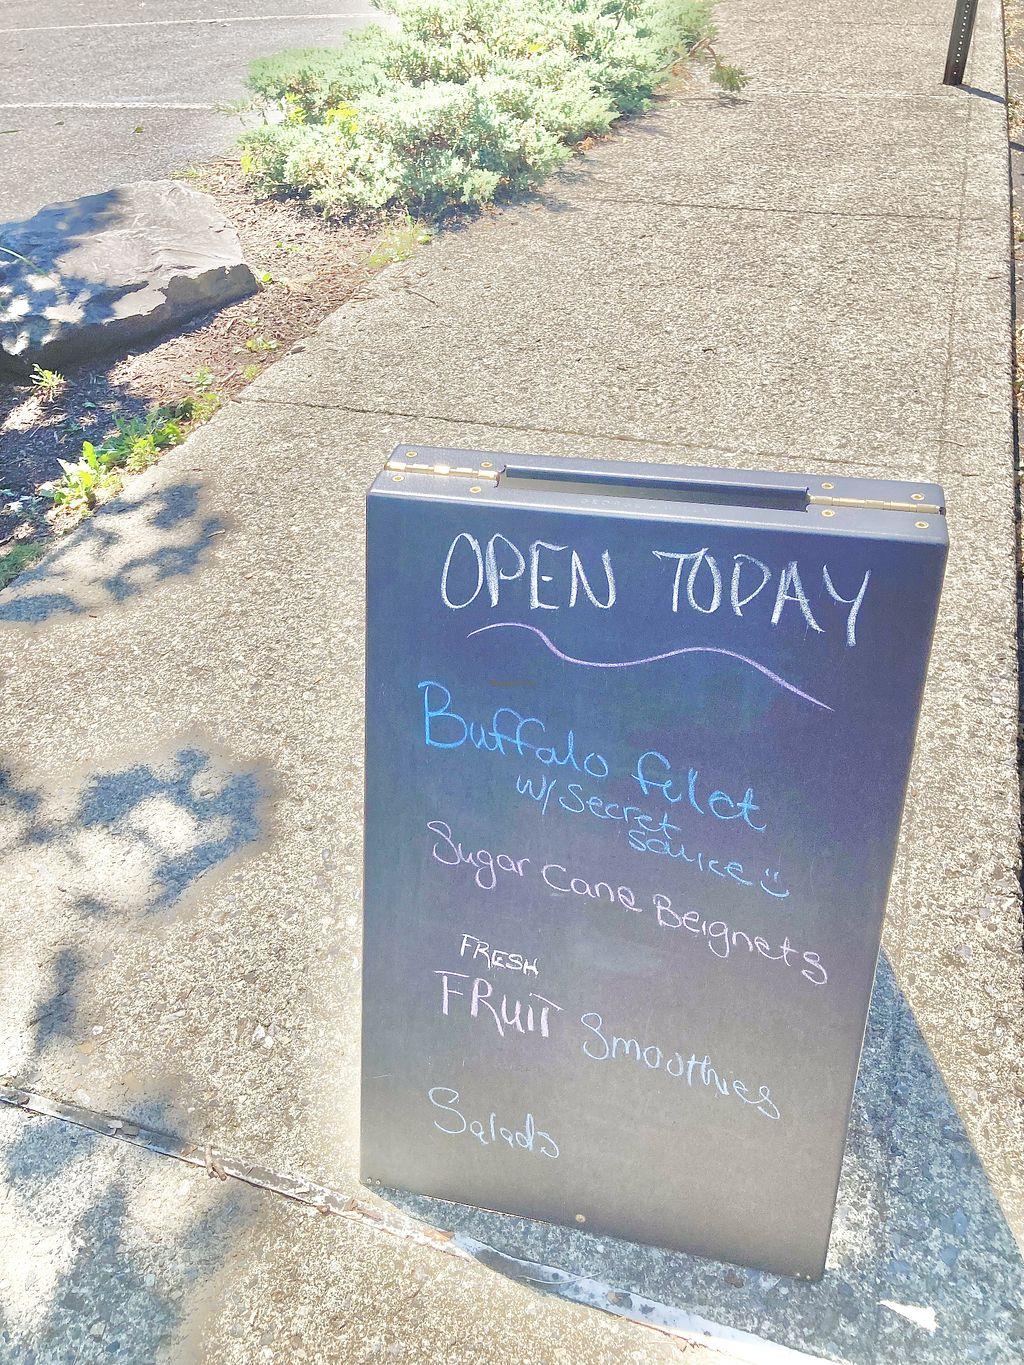 OPEN TODAY
Buffalo filet
w/ Secret
sauce
Sugar Cane Beignets
FRESH
FRUIT Smoothies
Salads